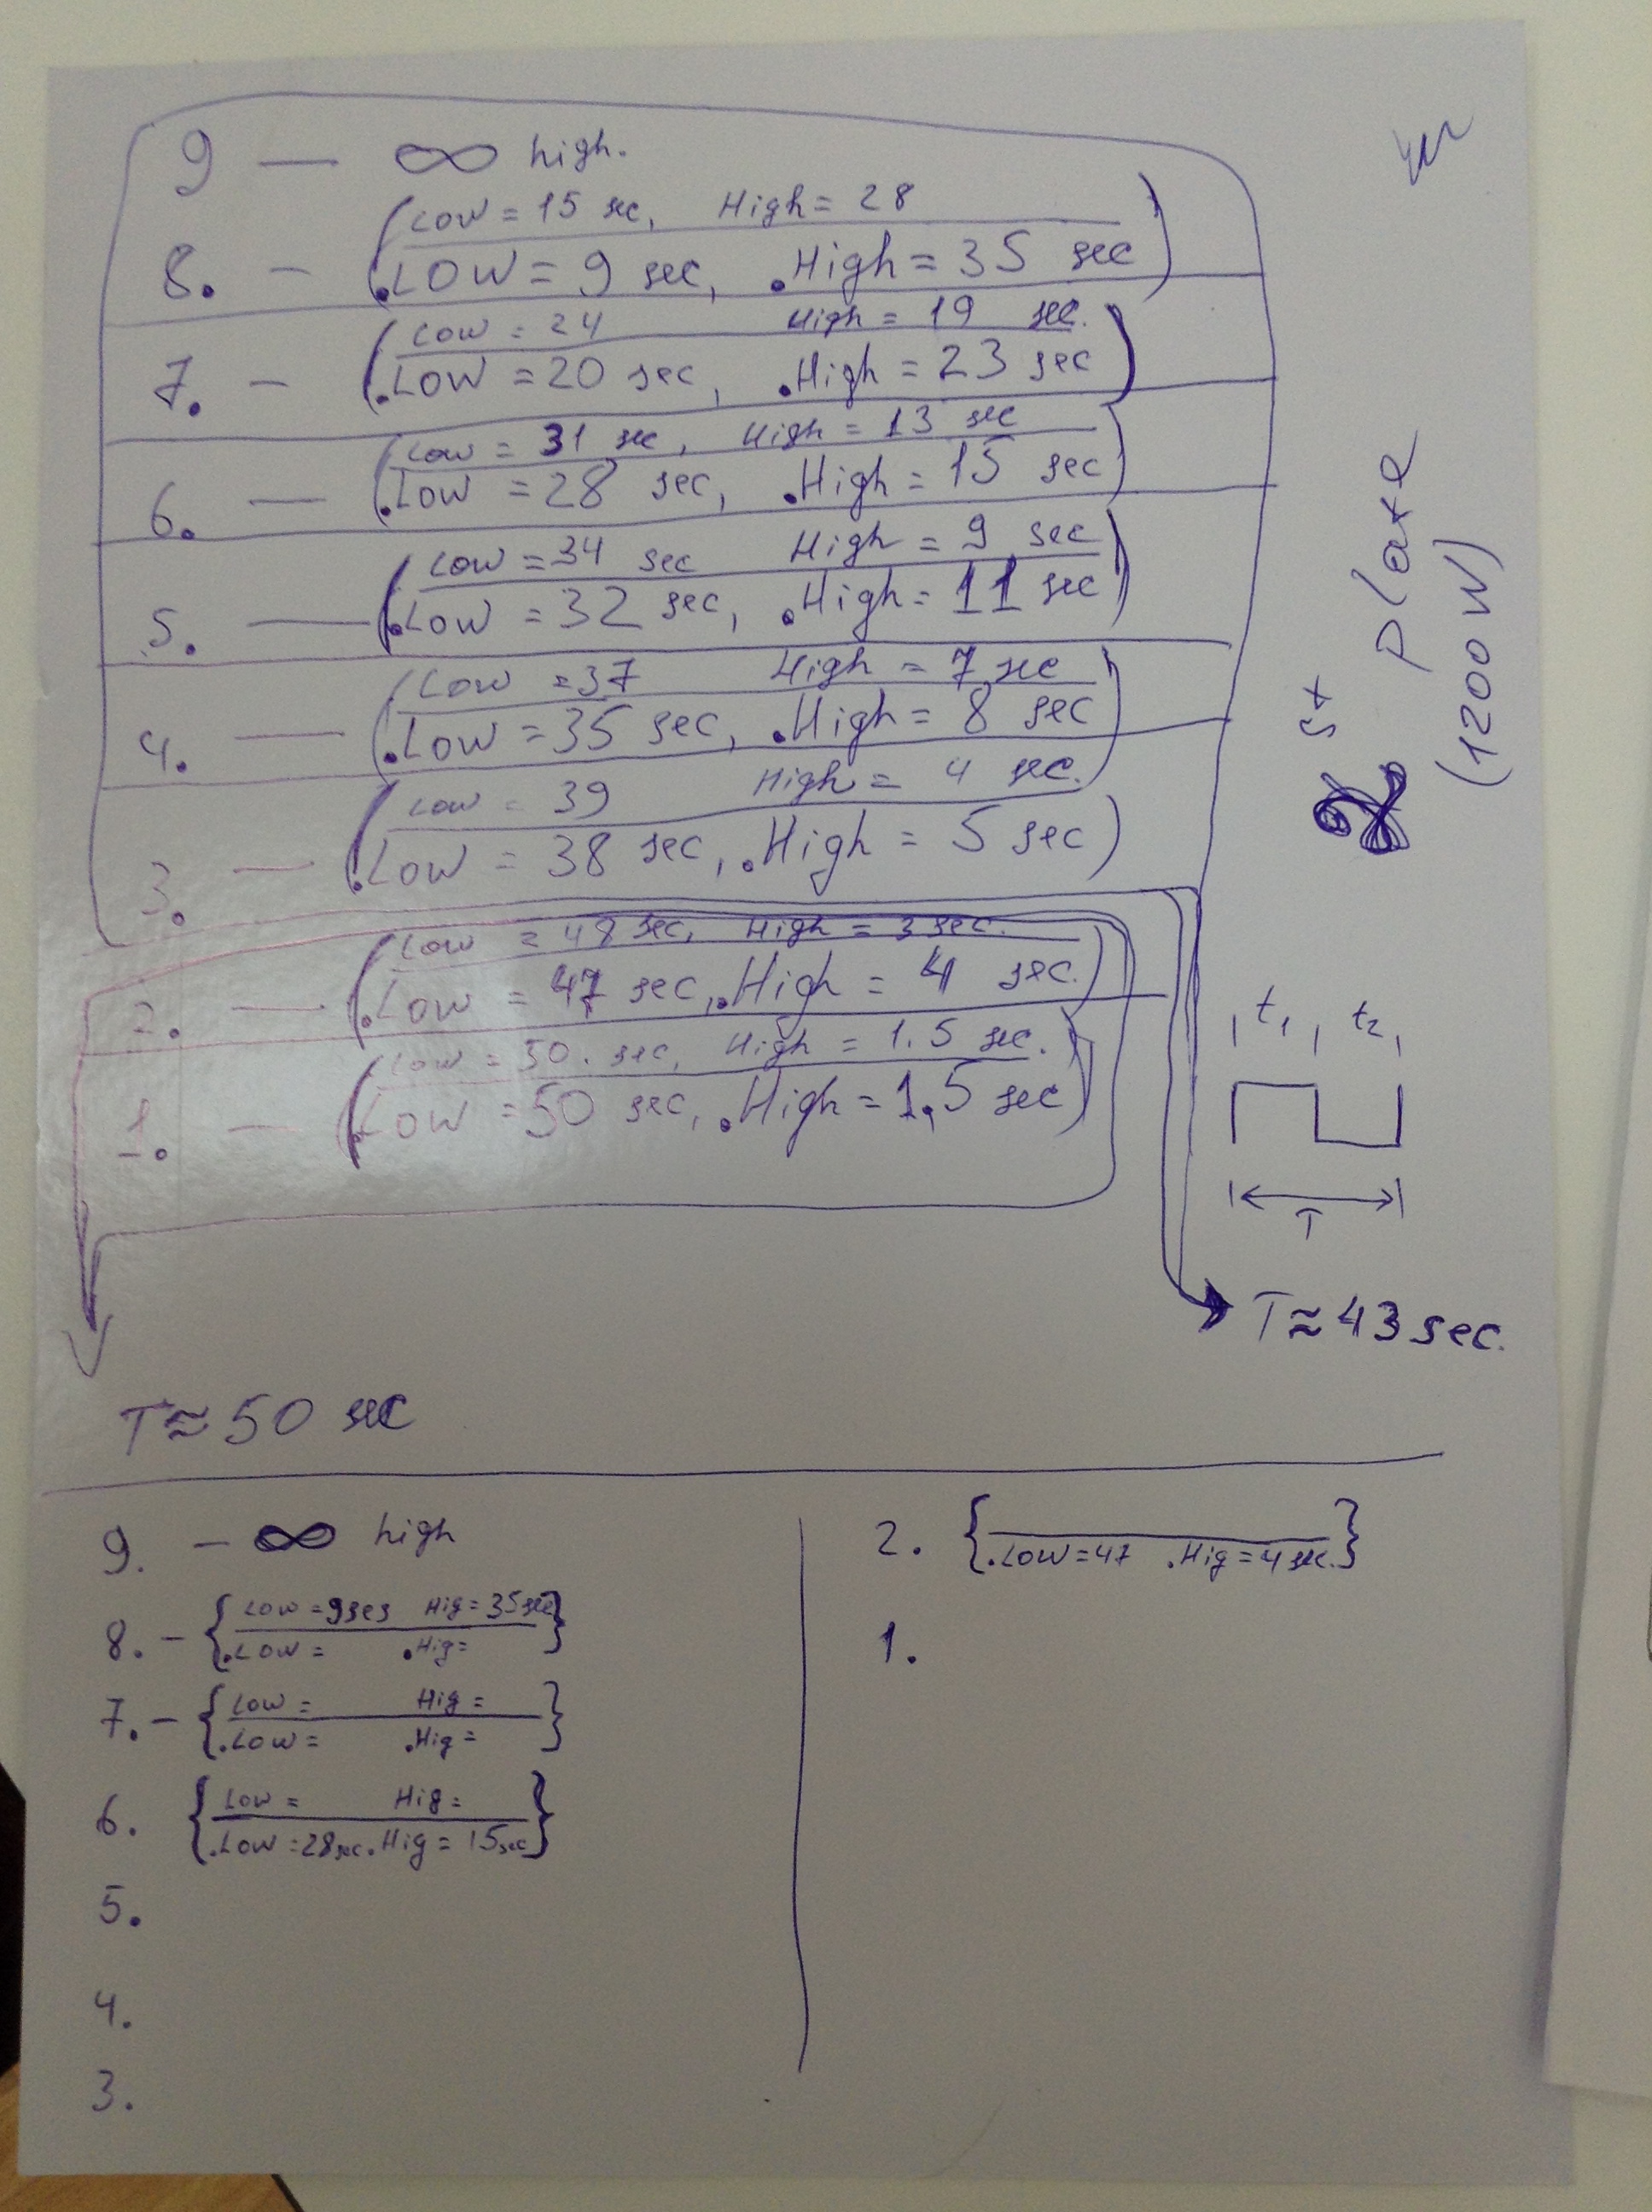 9 — ∞ high.
Low = 15 sec, High = 28
8. — .LOW = 9 sec, .High = 35 sec
Low = 24 High = 19 sec.
7. — .LOW = 20 sec, .High = 23 sec
Low = 31 sec, High = 13 sec
6. — .Low = 28 sec, .High = 15 sec
Low = 34 sec High = 9 sec
5. — .Low = 32 sec, .High = 11 sec
Low = 37 High = 7 sec
4. — .Low = 35 sec, .High = 8 sec
Low = 39 High = 4 sec.
3. — .Low = 38 sec, .High = 5 sec
Low = 48 sec, High = 3 sec.
2. — .Low = 47 sec, .High = 4 sec.
Low = 50. sec, High = 1.5 sec.
1. — Low = 50 sec, .High = 1,5 sec
st plate
(1200W)
t1 t2
T
T ≈ 43 sec.
T ≈ 50 sec
9. — ∞ high
8. — {Low = 9 ses Hig = 35 sec
.LOW = .Hig = }
7. — {Low = Hig =
.Low = .Hig = }
6. {Low = Hig =
.Low = 28 sec .Hig = 15 sec}
5.
4.
3.
2. {.Low = 47 .Hig = 4 sec.}
1.